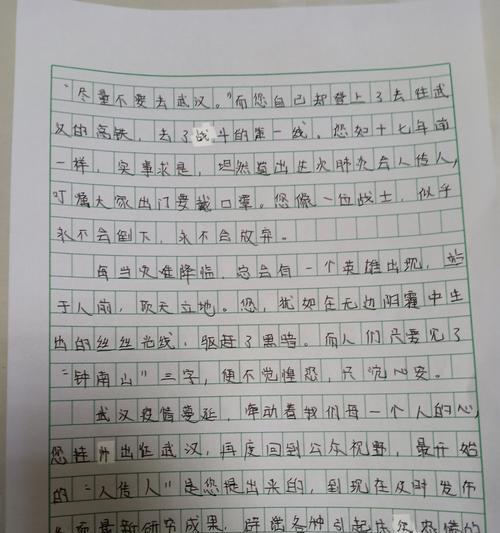 “尽量不要去武汉。”而您自己却登上了去往武
汉的高铁，去了战斗的第一线。您如十七年前
一样，实事求是，坦然道出这次肺炎会人传人，
叮嘱大家出门要戴口罩。您像一位战士，似乎
永不会倒下，永不会放弃。
每当灾难降临，总会有一个英雄出现，立
于人前，顶天立地。您，犹如在无边阴霾中生
出的丝丝光线，驱赶了黑暗。而人们只要见了
“钟南山”三字，便不觉惶恐，只觉心安。
武汉疫情蔓延，牵动着我们每一个人的心，
您挂帅出征武汉，再度回到公众视野，最开始
的“人传人”是您提出来的，到现在及时发布
最新研究成果，辟谣各种引起